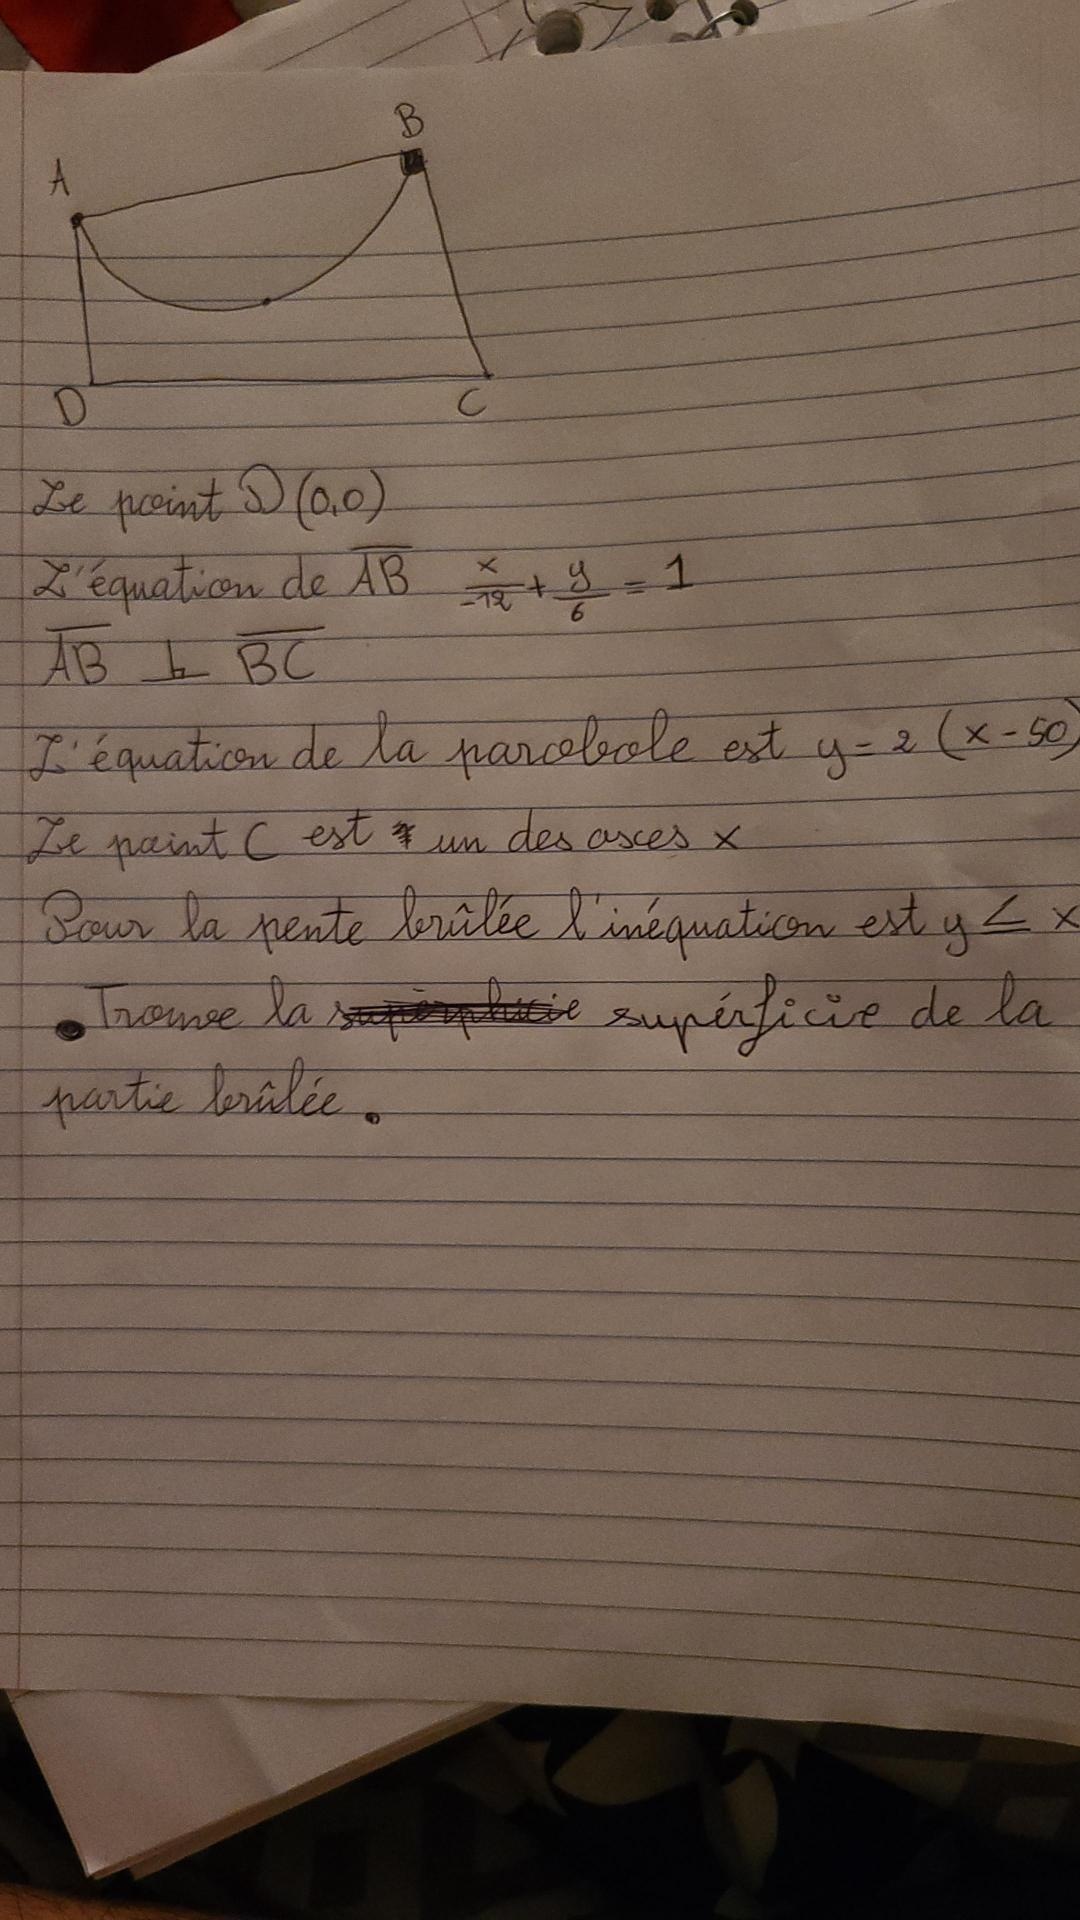 B
A
D
C
Le point D (0,0)
L'équation de AB x/-12 + y/6 = 1
AB ⊥ BC
L'équation de la parabole est y = 2 (x - 50)
Le point C est un des asces x
Pour la pente brûlée l'inéquation est y ≤ x
• Trouve la supérficie de la
partie brûlée.